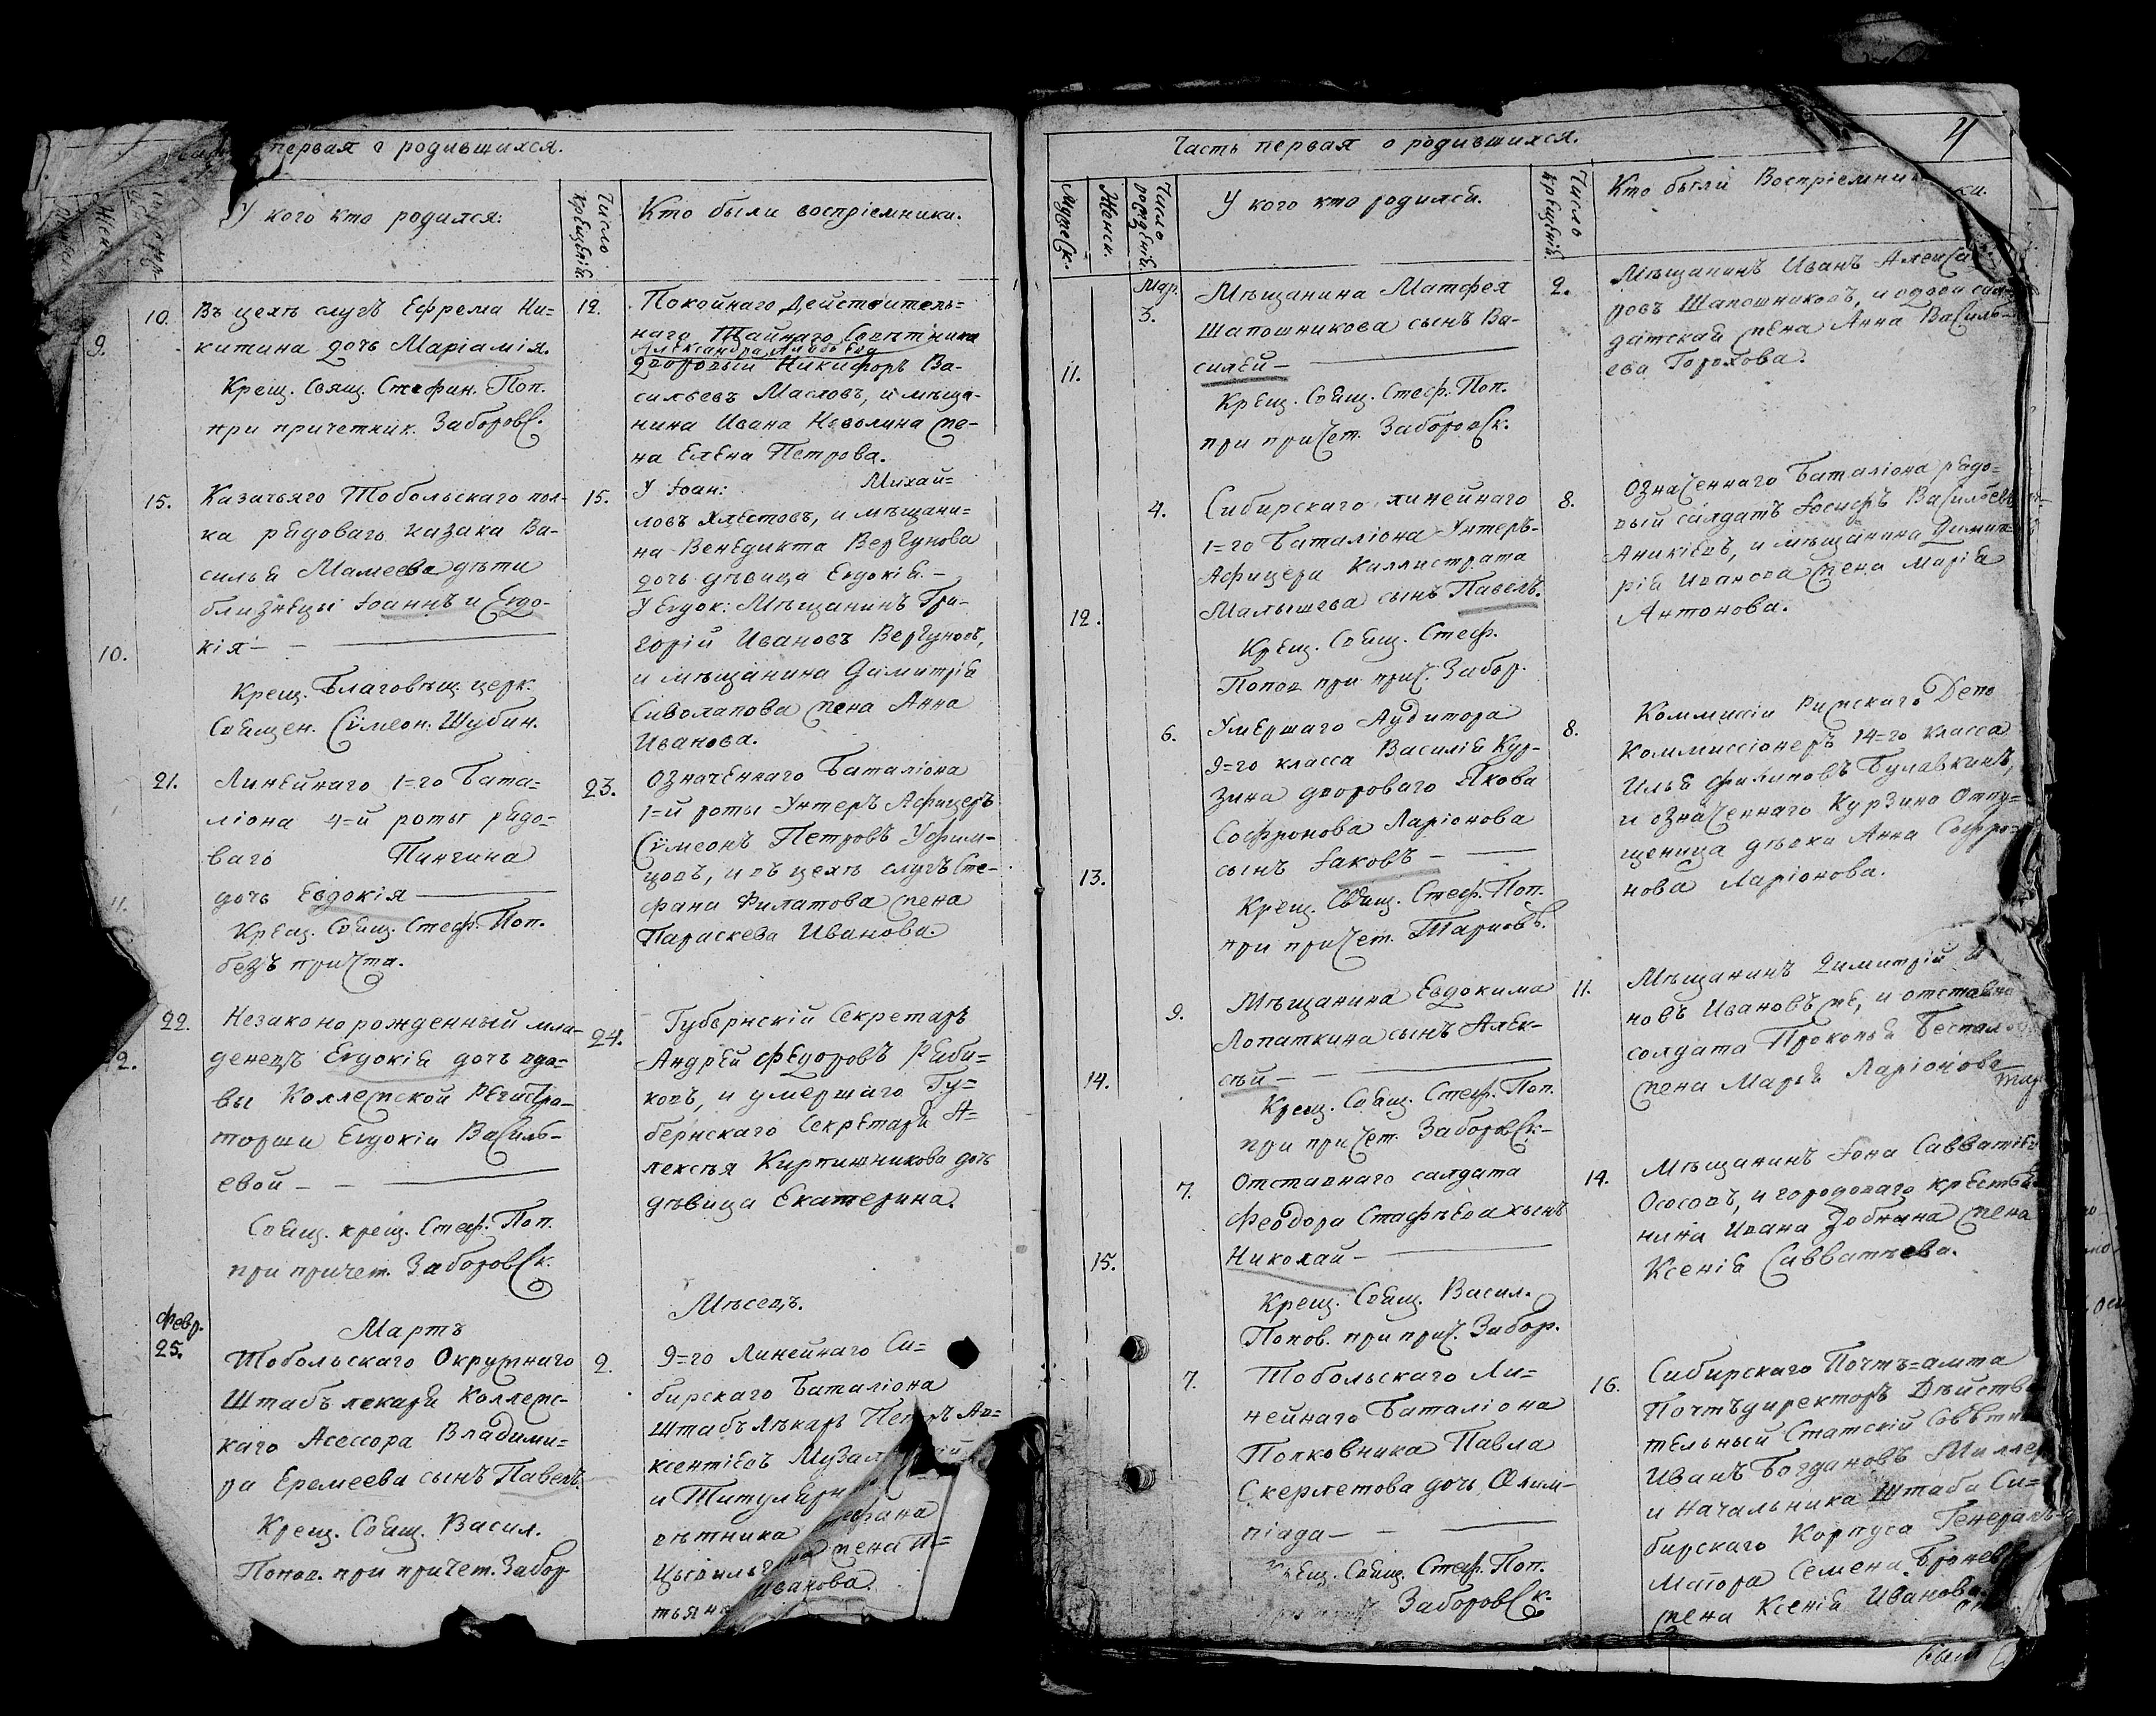 первая о родившихся.
У кого кто родился:
Число крещенія.
Кто были воспріемники.
9.
10.
Въ цехѣ слугъ Ефрема Ни=
китина дочь Маріамія.
Крещ. Свящ. Стефан. Поп.
при причетник. Заборовс.
12.
Покойнаго Действитель=
наго Тайнаго Советника
Александра
Дворовый Никифоръ Ва=
сильевъ Масловъ, и мѣща=
нина Ивана Неволина же=
на Елена Петрова.
10.
15.
Казачьяго Тобольскаго пол=
ка рядоваго казака Ва=
силья Мамеева дѣти
близнецы Іоаннъ и Евдо-
кія —
Крещ. Благовѣщ. церк.
Священ. Сѵмеон. Шубин.
15.
У Іоан: Михай=
ловъ Хлестовъ, и мѣщани=
на Венедикта Вергунова
дочь дѣвица Евдокія. —
У Евдок: Мѣщанинъ Гри=
горій Ивановъ Вергуновъ,
и мѣщанина Димитрія
Сиволапова жена Анна
Иванова.
11.
21.
Линейнаго 1=го Бата=
ліона 4=й роты рядо=
ваго Пингина
дочь Евдокія —
Крещ. Свящ. Стеф. Поп.
безъ причта.
23.
Означеннаго Баталіона
1=й роты Унтеръ Афицеръ
Сѵмеонъ Петровъ Уфим=
цовъ, и въ цехѣ слугъ Сте=
фана Филатова жена
Параскева Иванова.
2.
22.
Незаконорожденный мла=
денецъ Евдокія дочь вдо=
вы Коллежской Регистра=
торши Евдокіи Василь=
евой —
Свящ. крещ. Стеф. Поп.
при причет. Заборовск.
24.
Губернскій Секретарь
Андрей Федоровъ Ряби=
ковъ, и умершаго Гу=
бернскаго Секретаря А=
лексѣя Кирпишникова дочь
дѣвица Екатерина.
Мартъ Мѣсецъ.
Февр.
25.
Тобольскаго Окружнаго
Штабъ лекаря Коллежс=
каго Асессора Владими=
ра Еремеева сынъ Павелъ.
Крещ. Свящ. Васил.
Попов. при причет. Забор.
2.
9=го Линейнаго Си=
бирскаго Баталіона
Штабъ Лѣкарь Петръ Ав=
ксентіевъ
и Титулярн
вѣтника Стефана
жена
Иванова.
4
Часть первая о родившихся.
Мужеск.
Женск.
Число рожденія.
У кого кто родился.
Число крещенія.
Кто были Воспріемники.
11.
Мар.
3.
Мѣщанина Матфея
Шапошникова сынъ Ва=
силей —
Крещ. Свящ. Стеф. Поп.
при причет. Заборовск.
2.
Мѣщанинъ Иванъ Алексан
ровъ Шапошниковъ, и вдова сал=
датская жена Анна Василь=
ева Горохова.
12.
4.
Сибирскаго линейнаго
1=го Баталіона Унтеръ=
Афицера Каллистрата
Малышева сынъ Павелъ.
Крещ. Свящ. Стеф.
Попов при прич. Забор.
8.
Означеннаго Баталіона рядо=
вый салдатъ Іосифъ Васильевъ
Аникіевъ, и мѣщанина Димит=
рія Иванова жена Марія
Антонова.
13.
6.
Умершаго Аудитора
9=го класса Василія Кур=
зина двороваго Якова
Софронова Ларіонова
сынъ Іаковъ —
Крещ. Свящ. Стеф. Поп.
при причет. Тарковъ.
8.
Коммисіи Рижскаго Депо
Коммиссіонеръ 14=го класса
Илья Филиповъ Булавкинъ,
и означеннаго Курзина Отпу=
щеница дѣвка Анна Софро=
нова Ларіонова.
14.
9.
Мѣщанина Евдокима
Лопаткина сынъ Алек=
сѣй —
Крещ. Свящ. Стеф. Поп.
при причет. Заборовск.
11.
Мѣщанинъ Димитрій И
новъ Ивановъ же, и отставна
солдата Прокопья Беспал
жена Марья Ларіонова
15.
7.
Отставнаго салдата
Феодора Стафѣева сынъ
Николай —
Крещ. Свящ. Васил.
Попов. при прич. Забор.
14.
Мѣщанинъ Іона Савватіев
Ососовъ, и городоваго крестья
нина Ивана Добнина жена
Ксенія Савватѣева.
7.
Тобольскаго Ли=
нейнаго Баталіона
Полковника Павла
Скерлетова дочь Олим=
піада —
Крещ. Свящ. Стеф. Поп.
Заборовск.
16.
Сибирскаго Почтъ=амта
Почтъдиректоръ Дѣйств
тельный Статскій Совѣтни
Иванъ Богдановъ Миллер
и Начальника Штаба Си=
бирскаго Корпуса Генералъ
Маіора Семена Броневс
жена Ксенія Иванова